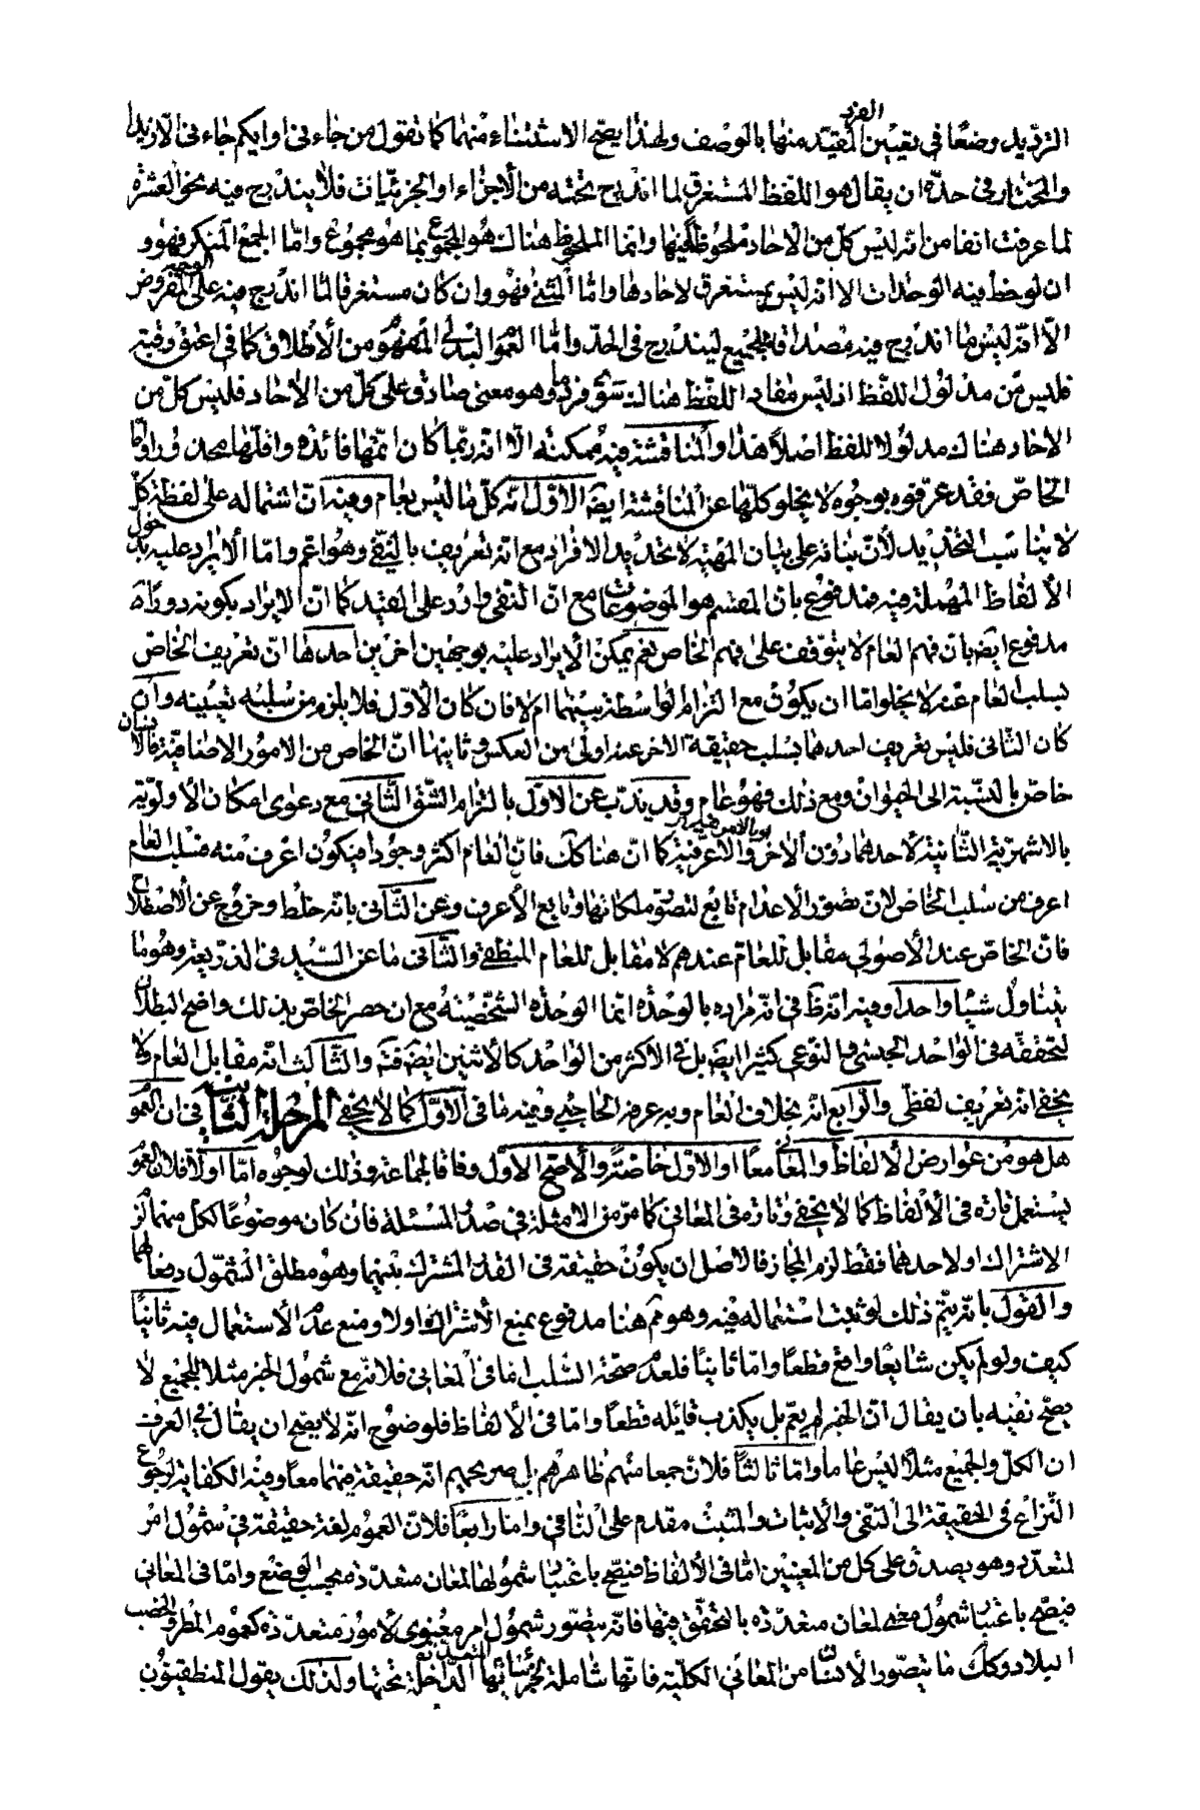 الترديد وضعًا في تعيين الفرد المقيّد منها بالوصف ولهذا يصحّ الاستثناء منهما كما تقول من جاءني او ايّكم جاءني الّا زيدا
والمختار في حدّه ان يقال هو اللفظ المستغرق لما اندرج تحته من الأجزاء او الجزئيّات فلا يندرج فيه نحو العشرة
لما عرفت انفا من انّه ليس كلّ من الاحاد ملحوظا فيها وانّما الملحوظ هناك هو المجموع بما هو مجموع وامّا الجمع المنكر فهو و
ان لوحظ فيه الوحدات الا انّه ليس بمستغرق لاحادها وامّا المثنّى فهو وان كان مستغرقا لما اندرج فيه على المفروض
الّا انّه ليس ما اندرج فيه مصداقا للجميع ليندرج في الحدّ وامّا العموم البدلي المفهوم من الأطلاق كما في اعتق رقبة
فليس من مدلول اللفظ اذ ليس مفاد اللّفظ هناك سوى فرد ما وهو معنى صادق على كلّ من الأحاد فليس كلّ من
الاحاد هناك مدلولا للفظ اصلًا هذا والمناقشة فيه ممكنة الّا انّه ربّما كان اتمّها فائدة واقلّها محذورا وامّا
الخاصّ فقد عرّفوه بوجوه لا يخلو كلّها عن المناقشة ايضا الاوّل انّه كلّ ما ليس بعام وفيه انّ اشتماله على لفظة كلّ
لا يناسب التحديد لأنّ بنائه على بيان المهيّة لا تحديد الافراد مع انّه تعريف بالنّفي وهو اعمّ وامّا الايراد عليه بدخول
الألفاظ المهملة فيه فمدفوع بانّ المقسم هو الموضوعات مع انّ النّفي وارد على المقيّد كما انّ الايراد بكونه دوريّا
مدفوع ايضا بانّ فهم العام لا يتوقّف على فهم الخاص نعم يمكن الأيراد عليه بوجهين اخرين احدهما انّ تعريف الخاصّ
بسلب العام عنه لا يخلو امّا ان يكون مع التزام الواسطة بينهما ام لا فان كان الأوّل فلا يلزم من سلبه تعيينه وان
كان الثّاني فليس تعريف احدهما بسلب حقيقة الاخر عنه اولى من العكس وثانيهما انّ الخاص من الامور الاضافيّة فالانسان
خاصّ بالنّسبة الى الحيوان ومع ذلك فهو عام وقد يذبّ عن الأوّل بالتزام الشّقّ الثّاني مع دعوى امكان الأولويّة
بالاشهريّة الثّانية لاحدهما دون الأخر والاعرفيّة كما انّ هنا كك فانّ العام اكثر وجودا فيكون اعرف منه فسلب العام
اعرف من سلب الخاص لانّ تصوّر الأعدام تابع لتصوّر ملكاتها وتابع الأعرف وعن الثّاني بانّه خلط وخروج عن الأصطلاح
فانّ الخاصّ عند الأصولي مقابل للعامّ عندهم لا مقابل للعام المنطقي والثّاني ما عن السّيّد في الذّريعة وهو ما
يتناول شيئا واحدا وفيه انّه ظ في انّ مراده بالوحدة انّما الوحدة الشخصيّة مع ان حصر الخاص بذلك واضح البطلان
لتحققه في الواحد الجنسي والنوعي كثيرا ايضا بل في الاكثر من الواحد كالاثنين ايضا فتد والثّالث انّه مقابل العام ولا
يخفى انّه تعريف لفظي والرّابع انّه بخلاف العام وبه عرفه الحاجبي وفيه ما في الأوّل كما لا يخفى المرحلة الثّانية في ان العموم
هل هو من عوارض الألفاظ والمعاني معا او الاوّل خاصّة والأصحّ الأوّل وفاقا لجماعة وذلك لوجوه امّا اولا فلان العموم
يستعمل تارة في الألفاظ كما لا يخفى وتارة في المعاني كما مرّ من الأمثلة في صدر المسئلة فان كان موضوعًا لكلّ منهما لزم
الاشتراك او لاحدهما فقط لزم المجاز فالاصل ان يكون حقيقة في القدر المشترك بينهما وهو مطلق الشّمول دفعا لهما
والقول بانّه يتمّ ذلك لو ثبت استعماله فيه وهو مم هنا مدفوع بمنع الأشتراط اولا ومنع عدم الأستعمال فيه ثانيًا
كيف ولو لم يكن شايعًا واقع قطعًا وامّا ثانيًا فلعدم صحّة السّلب امّا في المعاني فلانّه مع شمول الخبر مثلا للجميع لا
يصحّ نفيه بان يقال انّ الخبر لم يعمّ بل يكذب قائله قطعًا وامّا في الألفاظ فلوضوح انّه لا يصحّ ان يقال في العرف
ان الكلّ والجميع مثلًا ليس عاما وامّا ثالثًا فلانّ جمعا منهم ظاهرهم بل صريحهم انّه حقيقة فيهما معا وفيه الكفاية لرجوع
النّزاع في الحقيقة الى النّفي والأثبات والمثبت مقدم على النّافي وامّا رابعًا فلانّ العموم لغة حقيقة في شمول امر
لمتعدّد وهو يصدق على كلّ من المعنيين امّا في الألفاظ فيصحّ باعتبار شمولها لمعان متعدّدة بحسب الوضع وامّا في المعاني
فيصحّ باعتبار شمول معنى لمعان متعدّدة بالتحقّق فيها فانّه يتصّور شمول امر معنوي لأمور متعدّدة كعموم المطر والخصب
البلاد وكك ما يتصّور الأنسان من المعاني الكليّة فانّها شاملة لجزئيّاتها المتعدّدة الدّاخلة تحتها ولذلك يقول المنطقيّون